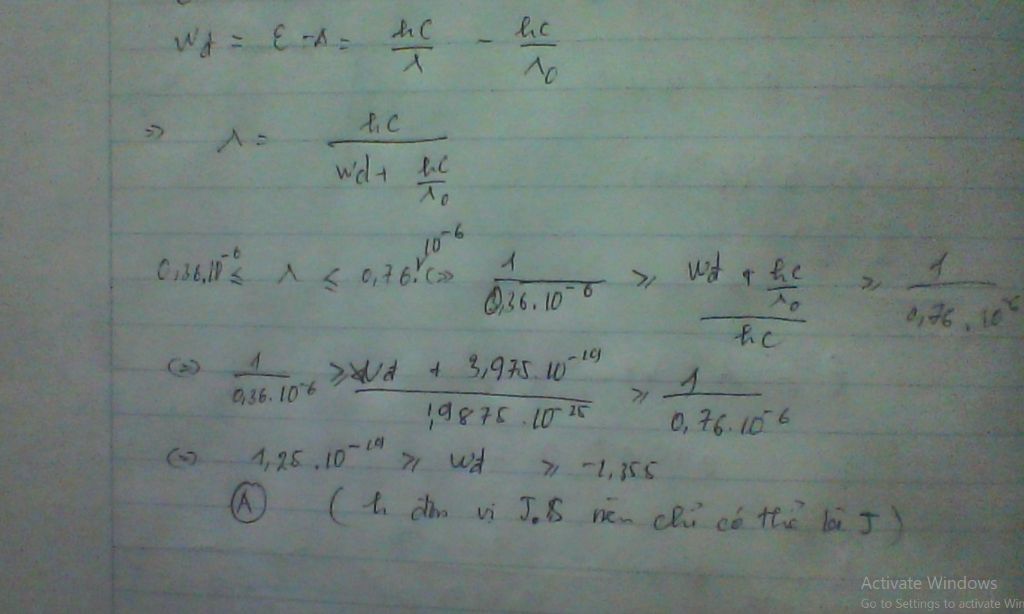 Wđ = ε - A = hc/λ - hc/λ₀
=> λ = hc/(Wđ + hc/λ₀)
0,36.10⁻⁶ ≤ λ ≤ 0,76.10⁻⁶ (=> 1/(0,36.10⁻⁶) ≥ (Wđ + hc/λ₀)/hc ≥ 1/(0,76.10⁻⁶)
(=> 1/(0,36.10⁻⁶) ≥ (Wđ + 3,975.10⁻¹⁹)/(1,9875.10⁻²⁵) ≥ 1/(0,76.10⁻⁶)
(=) 1,25.10⁻¹⁹ ≥ Wđ ≥ -1,355
A (h đơn vị J.s nên chỉ có thể là J)
Activate Windows
Go to Settings to activate Win